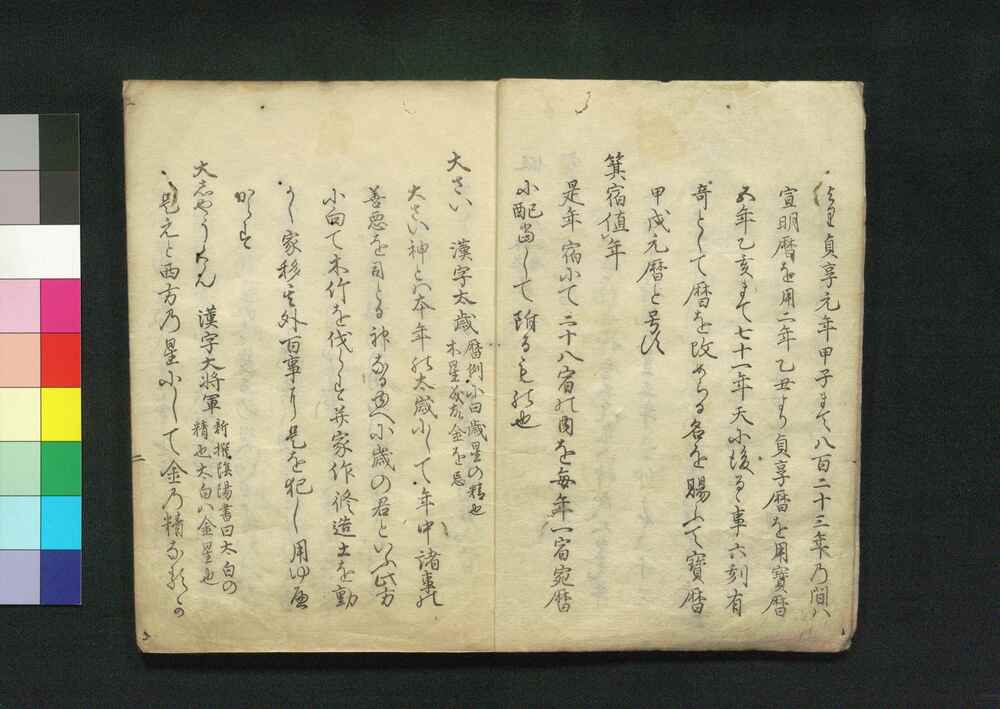 より貞享元年甲子まて八百二十三年乃間ハ
宣明暦を用二年乙丑より貞享暦を用寶暦
五年乙亥まて七十一年天小後るゝ事六刻有
奇として暦を改めらる名を賜ふて寶暦
甲戌元暦と号す
箕宿値年
是年宿小て二十八宿の内を毎年一宿宛暦
小配当して附るもの也
大さい 漢字太歳 暦例小曰歳星の精也
木星故金を忌
大さい神とハ本年の太歳小して年中諸事の
善悪を司とる神なる故小歳の君といふ此方
小向て木竹を伐らす并家作修造土を動
かし家移其外百事より是を犯し用ゆ
からす
大志やうくん 漢字大将軍 新撰陰陽書曰太白の
精也太白ハ金星也
是元と西方乃星小して金乃精なる